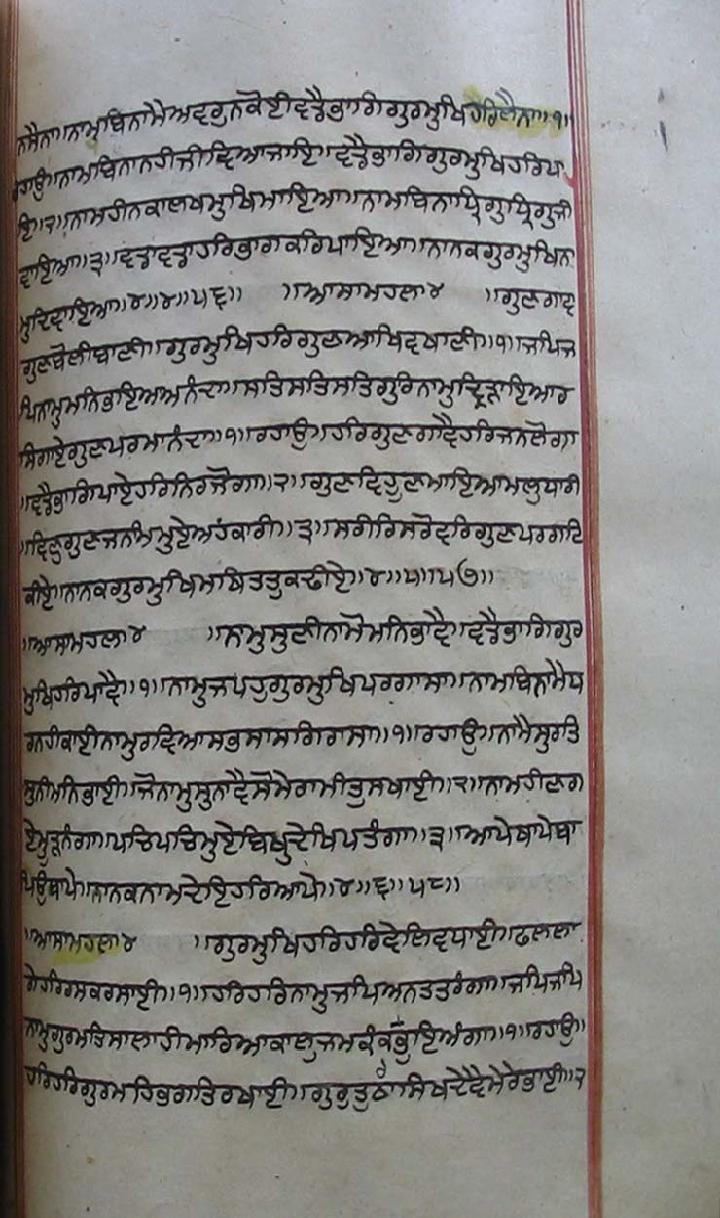 ਨਸੈਨਾ॥ਨਾਮਬਿਨਾਮੈਅਵਗੁਨਕੋਈਵਡੈਭਾਗਿਗੁਰਮੁਖਿਹਰਿਲੈਨਾ॥੧॥
ਰਹਾਉ॥ਨਾਮਬਿਨਾਨਹੀਜੀਵਿਆਜਾਇ॥ਵਡੈਭਾਗਿਗੁਰਮੁਖਿਹਰਿਪਾ
ਇ॥੨॥ਨਾਮਹੀਨਕਾਲਖਮੁਖਿਮਾਇਆ॥ਨਾਮਬਿਨਾਧ੍ਰਿਗੁਧ੍ਰਿਗੁਜੀ
ਵਾਇਆ॥੩॥ਵਡਾਵਡਾਹਰਿਭਾਗਕਰਿਪਾਇਆ॥ਨਾਨਕਗੁਰਮੁਖਿਨਾ
ਮੁਦਿਵਾਇਆ॥੪॥੪॥੫੬॥ ॥ਆਸਾਮਹਲਾ੪ ॥ਗੁਣਗਾਵਾ
ਗੁਣਬੋਲੀਬਾਣੀ॥ਗੁਰਮੁਖਿਹਰਿਗੁਣਆਖਿਵਖਾਣੀ॥੧॥ਜਪਿਜ
ਪਿਨਾਮੁਮਨਿਭਾਇਆਅਨੰਦਾ॥ਸਤਿਸਤਿਸਤਿਗੁਰਿਨਾਮੁਦ੍ਰਿੜਾਇਆਰ
ਸਿਗਾਏਗੁਣਪਰਮਾਨੰਦਾ॥੧॥ਰਹਾਉ॥ਹਰਿਗੁਣਗਾਵੈਹਰਿਜਨਲੋਗਾ
॥ਵਡੈਭਾਗਿਪਾਏਹਰਿਨਿਰਜੋਗਾ॥੨॥ਗੁਣਵਿਹੂਣਮਾਇਆਮਲੁਧਾਰੀ
॥ਵਿਣੁਗੁਣਜਨਮਿਮੁਏਅਹੰਕਾਰੀ॥੩॥ਸਰੀਰਿਸਰੋਵਰਿਗੁਣਪਰਗਟਿ
ਕੀਏ॥ਨਾਨਕਗੁਰਮੁਖਿਮਥਿਤਤੁਕਢੀਏ॥੪॥੫॥੫੭॥
॥ਆਸਾਮਹਲਾ੪ ॥ਨਾਮੁਸੁਣੀਨਾਮੋਮਨਿਭਾਵੈ॥ਵਡੈਭਾਗਿਗੁਰ
ਮੁਖਿਹਰਿਪਾਵੈ॥੧॥ਨਾਮੁਜਪਹੁਗੁਰਮੁਖਿਪਰਗਾਸਾ॥ਨਾਮਬਿਨਾਮੈਧ
ਰਨਹੀਕਾਈਨਾਮੁਰਵਿਆਸਭਸਾਸਗਿਰਾਸਾ॥੧॥ਰਹਾਉ॥ਨਾਮੈਸੁਰਤਿ
ਸੁਨੀਮਨਿਭਾਈ॥ਜੋਨਾਮੁਸੁਨਾਵੈਸੋਮੇਰਾਮੀਤੁਸਖਾਈ॥੨॥ਨਾਮਹੀਣਗ
ਏਮੂੜਨੰਗਾ॥ਪਚਿਪਚਿਮੁਏਬਿਖੁਦੇਖਿਪਤੰਗਾ॥੩॥ਆਪੇਥਾਪੇਥਾ
ਪਿਉਥਾਪੇ॥ਨਾਨਕਨਾਮਦੇਇਹਰਿਆਪੇ॥੪॥੬॥੫੮॥
॥ਆਸਾਮਹਲਾ੪ ॥ਗੁਰਮੁਖਿਹਰਿਹਰਿਵੇਲਿਵਧਾਈ॥ਫਲਲਾ
ਗੇਹਰਿਰਸਕਰਸਾਈ॥੧॥ਹਰਿਹਰਿਨਾਮੁਜਪਿਅਨਤਤਰੰਗਾ॥ਜਪਿਜਪਿ
ਨਾਮੁਗੁਰਮਤਿਸਾਲਾਹੀਮਾਰਿਆਕਾਲੁਜਮਕੰਕਭੁਇਅੰਗਾ॥੧॥ਰਹਾਉ॥
ਹਰਿਹਰਿਗੁਰਮਹਿਭਗਤਿਰਖਾਈ॥ਗੁਰੁਤੁਠਾਸਿਖਦੇਵੈਮੇਰੇਭਾਈ॥੨